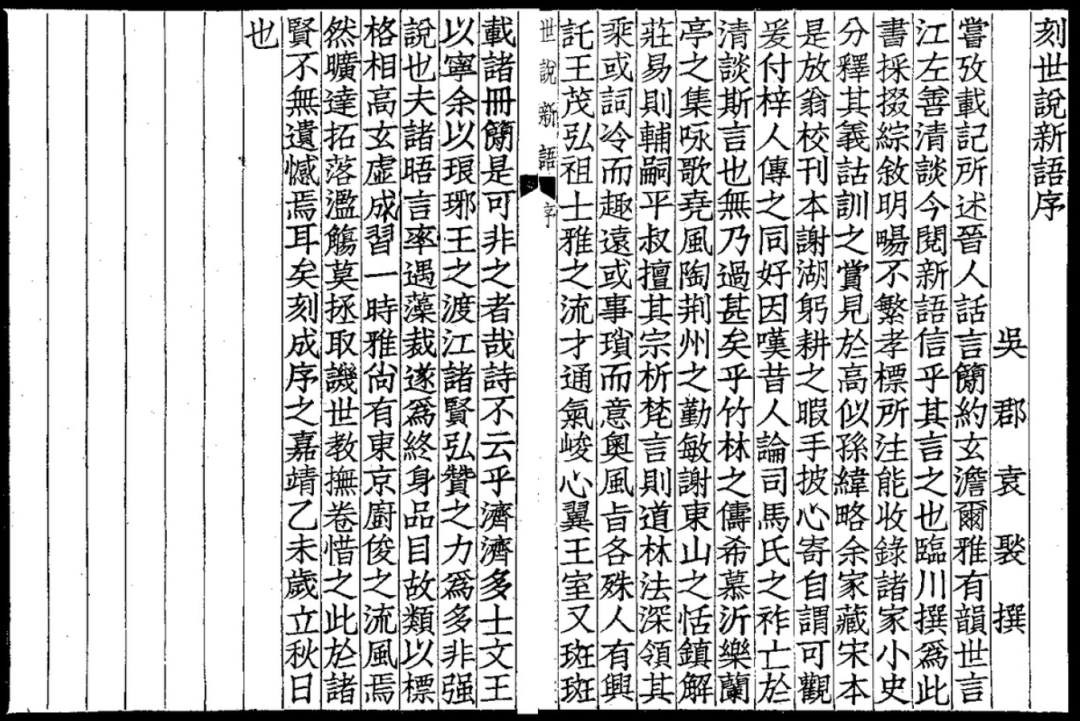 刻世說新語序
吳郡袁褧撰
嘗攷載記所述晉人話言簡約玄澹爾雅有韻世言
江左善清談今閱新語信乎其言之也臨川撰爲此
書採掇綜敘明暢不繁孝標所注能收錄諸家小史
分釋其義詁訓之賞見於高似孫緯略余家藏宋本
是放翁校刊本謝湖躬耕之暇手披心寄自謂可觀
爰付梓人傳之同好因嘆昔人論司馬氏之祚亡於
清談斯言也無乃過甚矣乎竹林之儔希慕沂樂蘭
亭之集咏歌堯風陶荆州之勤敏謝東山之恬鎮解
莊易則輔嗣平叔擅其宗析梵言則道林法深領其
乘或詞冷而趣遠或事瑣而意奧風旨各殊人有興
託王茂弘祖士雅之流才通氣峻心翼王室又斑斑
世說新語 序
載諸冊簡是可非之者哉詩不云乎濟濟多士文王
以寧余以琅琊王之渡江諸賢弘贊之力爲多非强
說也夫諸晤言率遇藻裁遂爲終身品目故類以標
格相高玄虛成習一時雅尚有東京廚俊之流風焉
然曠達拓落濫觴莫拯取譏世教撫卷惜之此於諸
賢不無遺憾焉耳矣刻成序之嘉靖乙未歲立秋日
也